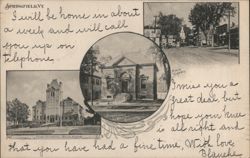 SPRINGFIELD, VT.
I will be home in about
a week and will call
you up on
telephone.
I miss you a
great deal, but
I hope your time
is all right and
that you have had a fine time, With love
Blanche